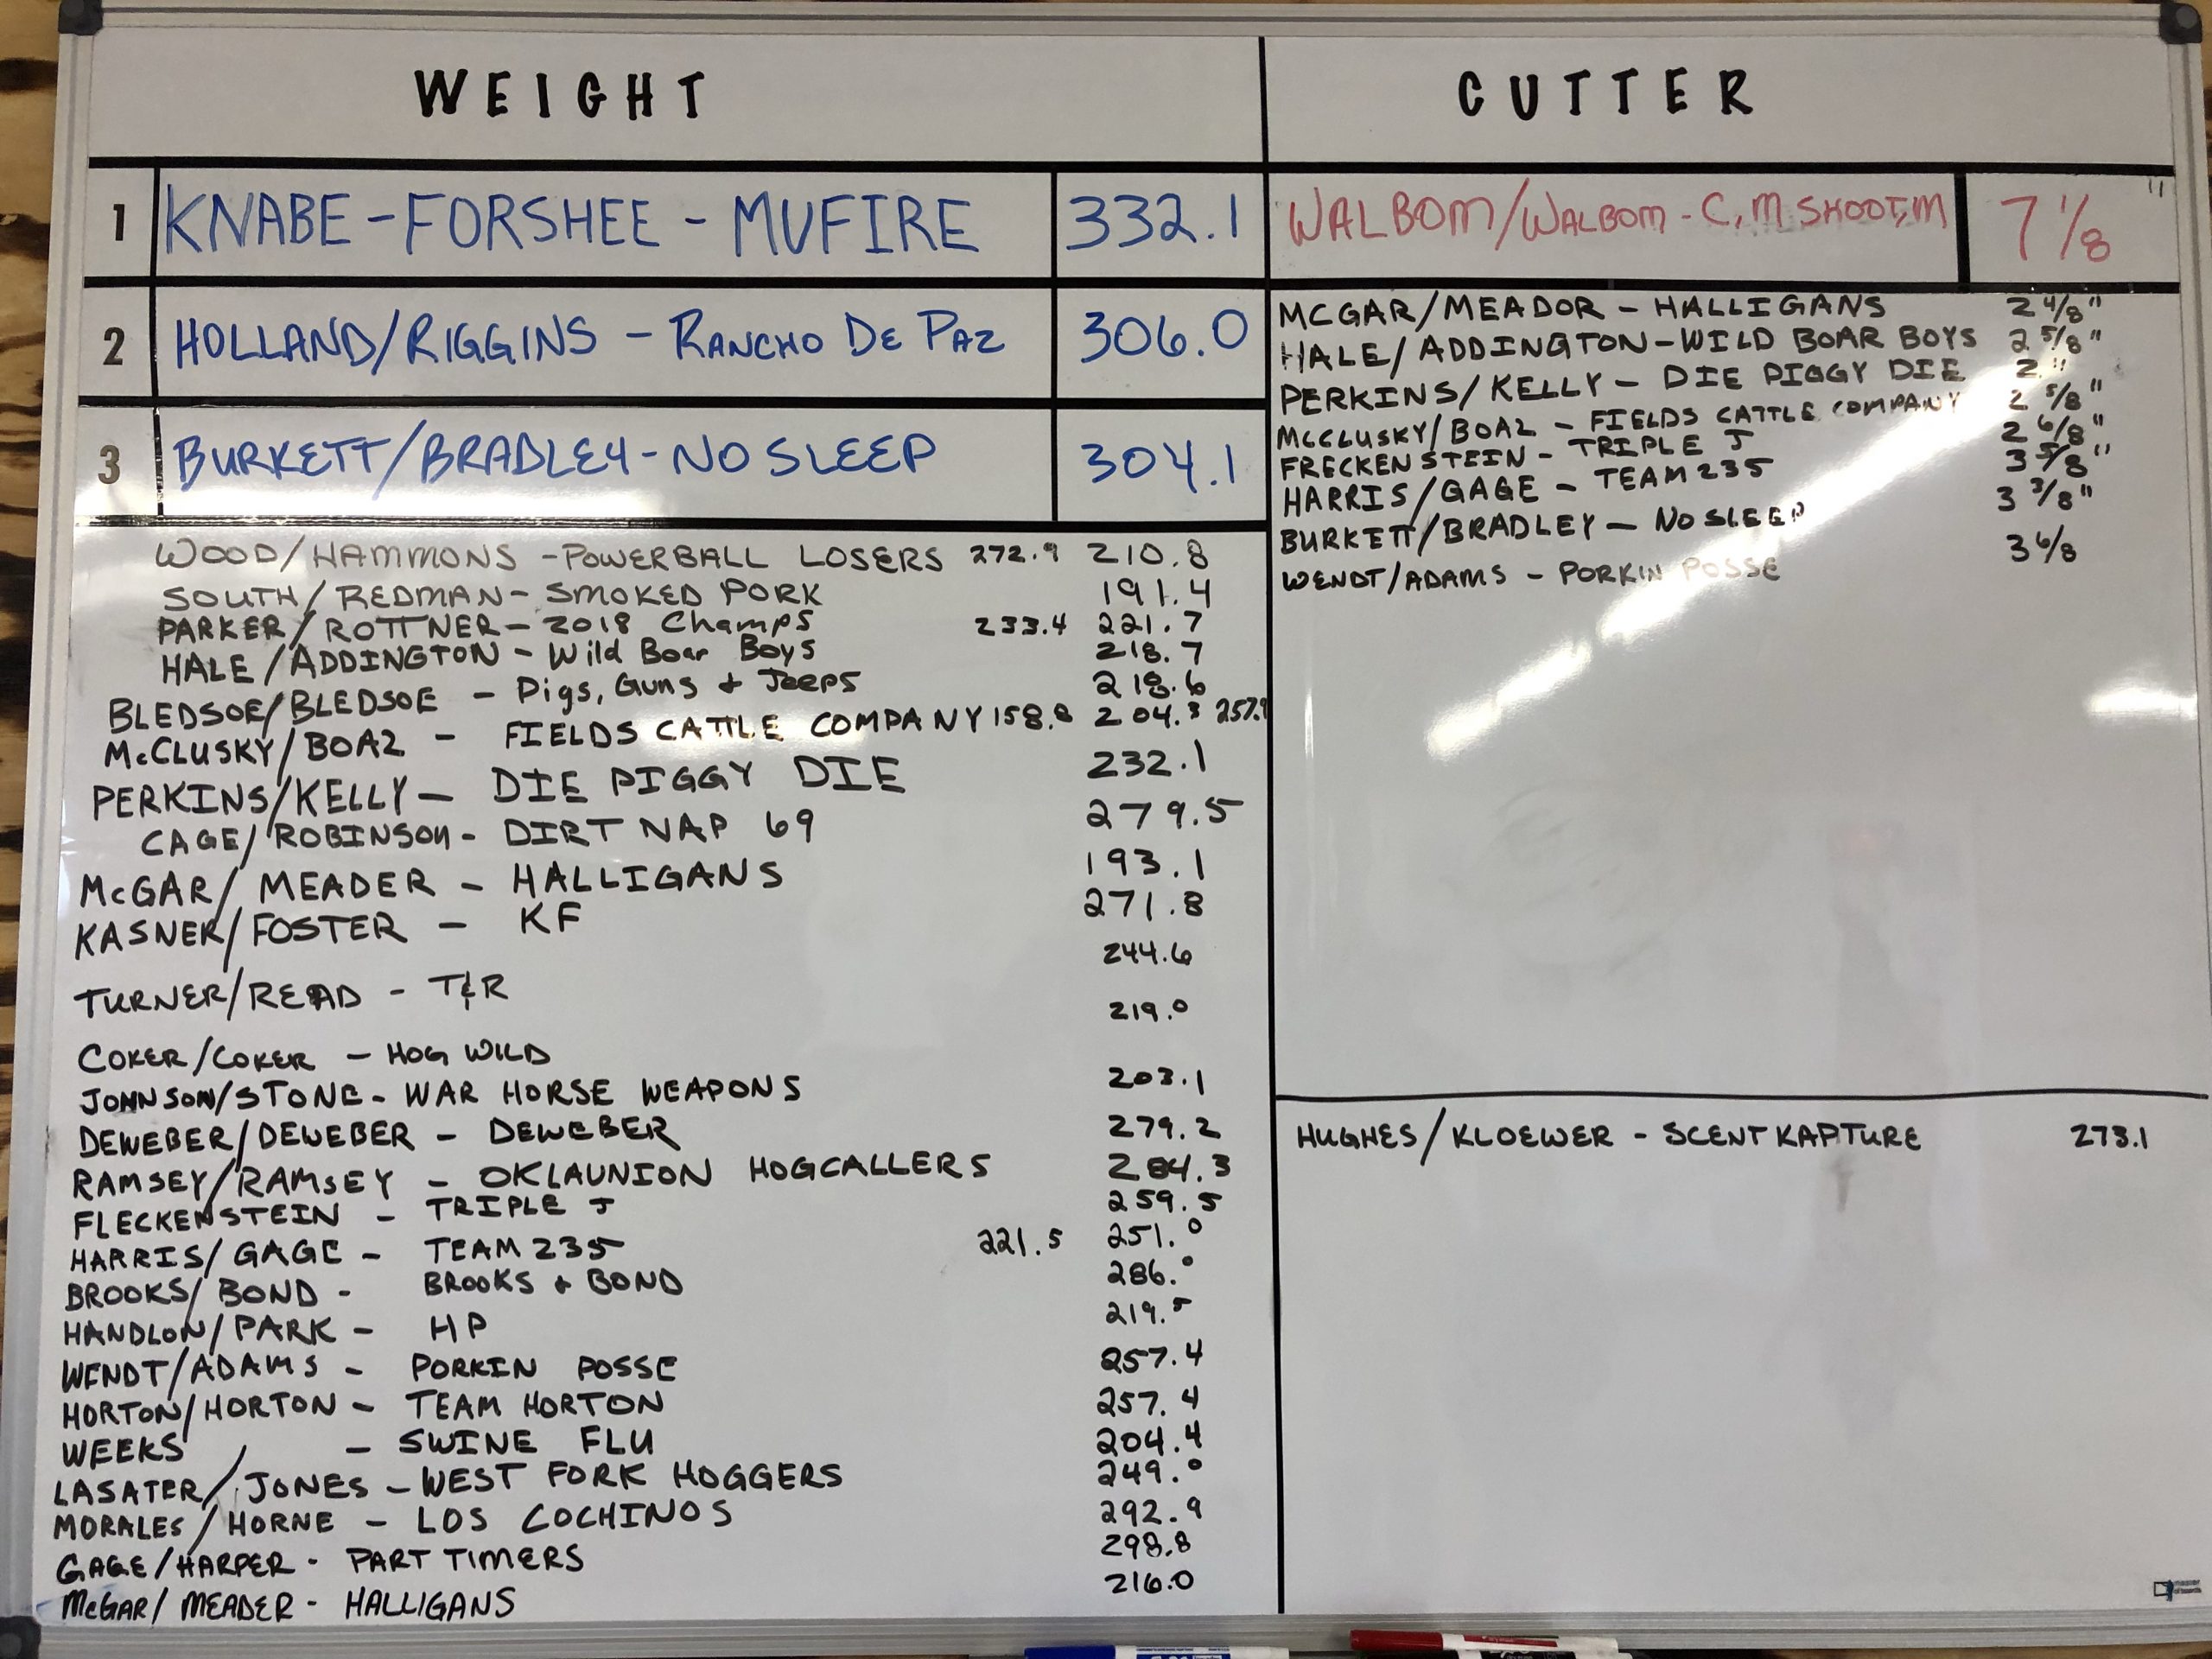 WEIGHT
1 KNABE - FORSHEE - MUFIRE 332.1
2 HOLLAND/RIGGINS - RANCHO DE PAZ 306.0
3 BURKETT/BRADLEY - NO SLEEP 304.1
WOOD/HAMMONS - POWERBALL LOSERS 272.9 210.8
SOUTH/REDMAN - SMOKED PORK 191.4
PARKER/ROTTNER - 2018 Champs 233.4 221.7
HALE/ADDINGTON - Wild Boar Boys 218.7
BLEDSOE/BLEDSOE - Pigs, Guns & Jeeps 218.6
McCLUSKY/BOAZ - FIELDS CATTLE COMPANY 158.8 204.3 257.9
PERKINS/KELLY - DIE PIGGY DIE 232.1
CAGE/ROBINSON - DIRT NAP 69 279.5
McGAR/MEADER - HALLIGANS 193.1
KASNER/FOSTER - KF 271.8
TURNER/READ - T&R 244.6
COKER/COKER - HOG WILD 219.0
JOHNSON/STONE - WAR HORSE WEAPONS 203.1
DEWEBER/DEWEBER - DEWEBER 279.2
RAMSEY/RAMSEY - OKLAUNION HOGCALLERS 284.3
FLECKENSTEIN - TRIPLE J 259.5
HARRIS/GAGE - TEAM 235 221.5 251.0
BROOKS/BOND - BROOKS & BOND 286.0
HANDLON/PARK - HP 219.5
WENDT/ADAMS - PORKIN POSSE 257.4
HORTON/HORTON - TEAM HORTON 257.4
WEEKS / - SWINE FLU 204.4
LASATER/JONES - WEST FORK HOGGERS 249.0
MORALES/HORNE - LOS COCHINOS 292.9
GAGE/HARPER - PART TIMERS 298.8
McGAR/MEADER - HALLIGANS 216.0
CUTTER
WALBOM/WALBOM - C,M SHOOT,M 7 1/8"
MCGAR/MEADOR - HALLIGANS 2 4/8"
HALE/ADDINGTON - WILD BOAR BOYS 2 5/8"
PERKINS/KELLY - DIE PIGGY DIE 2"
McCLUSKY/BOAZ - FIELDS CATTLE COMPANY 2 5/8"
FRECKENSTEIN - TRIPLE J 2 6/8"
HARRIS/GAGE - TEAM 235 3 5/8"
BURKETT/BRADLEY - NO SLEEP 3 3/8"
WENDT/ADAMS - PORKIN POSSE 3 6/8
HUGHES/KLOEWER - SCENT KAPTURE 273.1